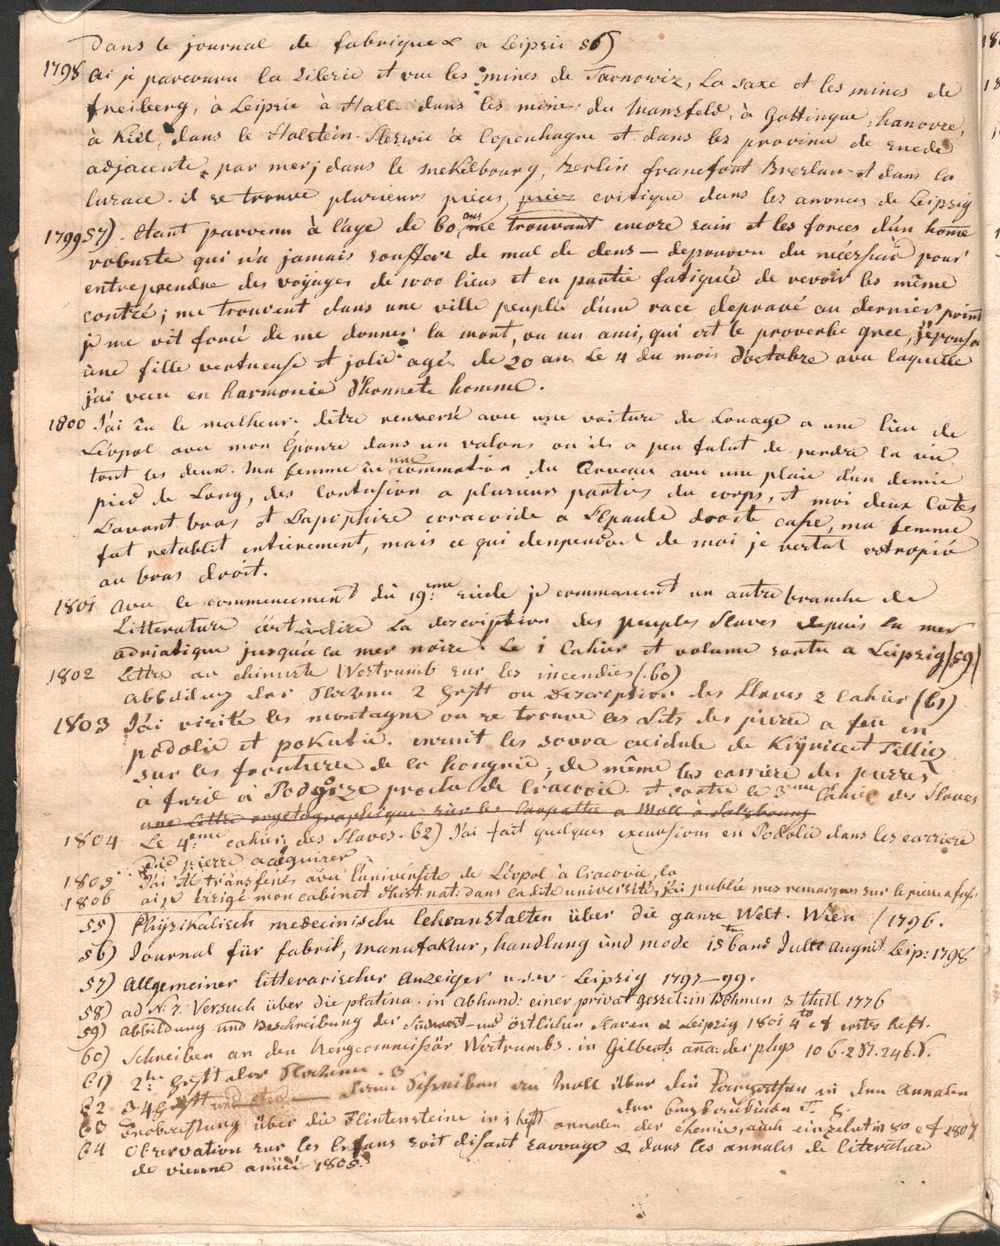 Dans le journal de fabrique & a Leipzic 56)
1798 ai je parcouru la Silesie et vue les mines de Tarnowiz, La saxe et les mines de
freiberg, à Leipzic à Hall dans les mine du Mansfeld, à Gottingue, hanovre,
à Kiel, dans le Holstein Sleswic à Copenhague et dans les province de suede
adjacente, par mer; dans le mekelbourg, Berlin francfort Breslau et dans la
lusace. il se trouve plusieurs pieces critique dans les anonces de Leipzig
1799 57). Etant parvenu à l'age de 60 ans me trouvant encore sain et les forces d'un home
robuste qui n'a jamais souffert de mal de dens — depourvu du nécéssaire pour
entreprendre des voyages de 1000 lieus et en partie fatiguéé de revoir les même
contré; me trouvent dans une ville peuplé d'une race depravé au dernier point
je me vit forcé de me donner la mort, ou un ami, qui est le proverbe grec, j'épousa
une fille vertueuse et jolie agé de 20 ans le 4 du mois d'octobre avec laquelle
j'ai vecu en harmonie d'honnete homme.
1800 J'ai eu le malheur d'être renversé avec une voiture de Louage a une lieu de
Léopol avec mon Epouse dans un valons ou ils a peu falut de perdre la vie
tout les deux. Ma femme eu une commotion du Cerveau avec une plaie d'un demie
pied de Long, des Contusion a plusieurs parties du corps, et moi deux Cotes
L'avant bras et L'apophise coracoide a l'Epaule droite cassé, ma femme
fut retablit entierement, mais ce qui dependoit de moi je restat estropié
au bras droit.
1801 Avec le commencement du 19me siecle je commencent un autre branche de
Litterature c'est à dire la description des peuples Slaves depuis la mer
adriatique jusqu'a la mer noire. Le 1 Cahier et volume sortie a Leipzig (59)
1802 Lettre au chimiste Westrumb sur les incendies (60)
Abbildung der Slavenn 2 Heft ou Description des Slaves 2 Cahier (61)
1803 J'ai visité les montagne ou se trouve les Lits des pierre a feu en
podolie et pokutie. ensuit les sources acidule de Krynice et Tillicz
sur les frontiere de la hongrie, de même les carriere des pierres
à fusil à Podgorze proche de Cracovie et sortie le 3me Cahier des Slaves
une Lettre oryctographique sur les Carpathes a Moll à Salzbourg
1804 Le 4eme cahier des Slaves. 62) J'ai fait quelques excursions en Podolie dans les carriere
de pierre a eguiser
1805 J'ai été transferés avec l'université de Léopol à Cracovie, la
1806 ai je érigé mon cabinet d'hist. nat. dans ladite université, j'ai publié mes remarques sur le pierre a fusil
55) Phÿsikalisch medecinische lehranstalten über die ganze Welt. Wien / 1796.
56) Journal für fabrik, manufaktur, handlung und mode 15ten band Julii August. Leip: 1798
57) Allgemeiner litterarischer Anzeiger u.s.w. Leipzig 1797–99.
58) ad N: 7. Versuch über die platina. in abhand: einer privat gesel: in Böhmen 3 theil 1776
59) Abbildung und Beschreibung der Südwest- und östlichen Slaven & Leipzig 1801 4to e f erstes heft.
60) Schreiben an den Bergcommissär Westrumb. in Gilberts ana: der phys 10 b. 2 st. 246 S.
61) 2te Heft der Slavenn.
62 3 4 Heft und Schreiben an Moll über die Karpathen in den Annalen
der berg
63 Beobachtung über die Flintensteine in 1 heft annalen der chemie, auch einzelnt in 80 ef 1807
64 Observation sur les Enfans soit disant sauvage & dans les annales de literature
de vienne année 1805